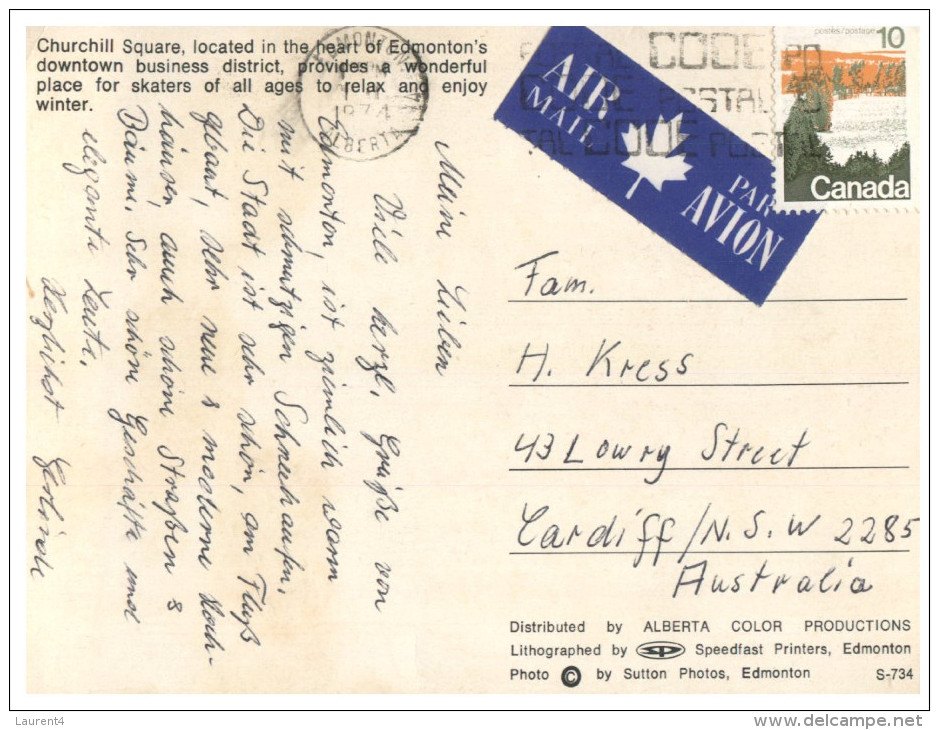 Churchill Square, located in the heart of Edmonton's
downtown business district, provides a wonderful
place for skaters of all ages to relax and enjoy
winter.
EDMONTON
1974
ALBERTA
AIR
MAIL
PAR
AVION
postes/postage 10
Canada
CODE
POSTAL
TAL CODE POSTAL
Meine Lieben
Viele herzl. Grüße von
Edmonton, ist ziemlich warm
mit schmutzigen Schneehaufen.
Die Stadt ist sehr schön, am Fluß
gebaut, sehr neue & moderne Hoch-
häuser, auch schöne Straßen &
Bäume. Sehr schöne Geschäfte und
elegante Leute.
Herzlichst Gerlinde
Fam.
H. Kress
43 Lowry Street
Cardiff/N.S.W 2285
Australia
Distributed by ALBERTA COLOR PRODUCTIONS
Lithographed by SP Speedfast Printers, Edmonton
Photo © by Sutton Photos, Edmonton S-734
Laurent4
www.delcampe.net